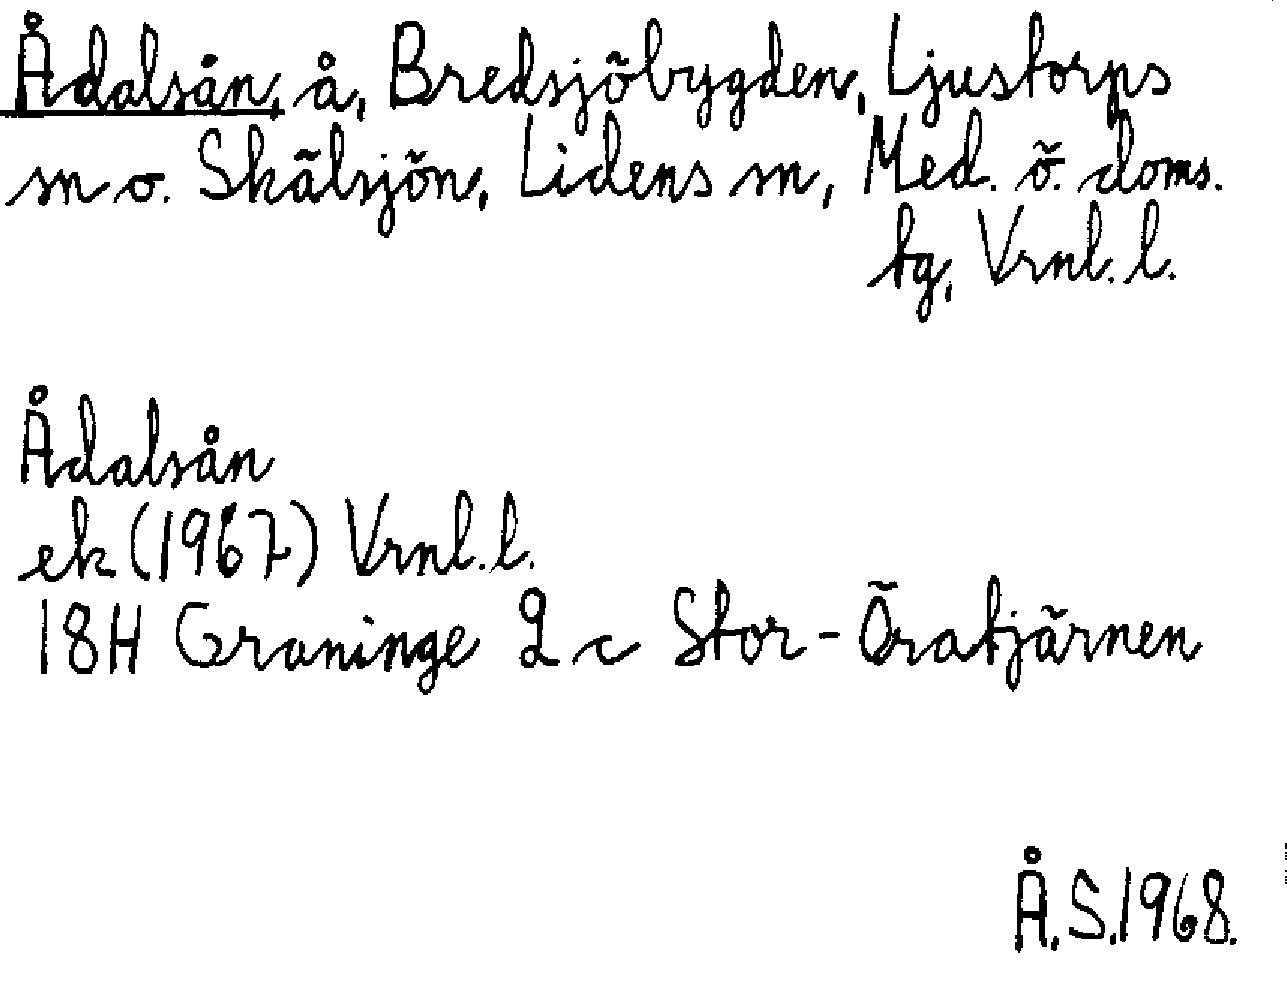 Ådalsån, å, Bredsjöbygden, Ljustorps
sn o. Skälsjön, Lidens sn, Med. ö. doms.
tg, Vrnl. l.
Ådalsån
ek (1967) Vrnl. l.
18H Graninge 2 c Stor-Öratjärnen
Å.S.1968.